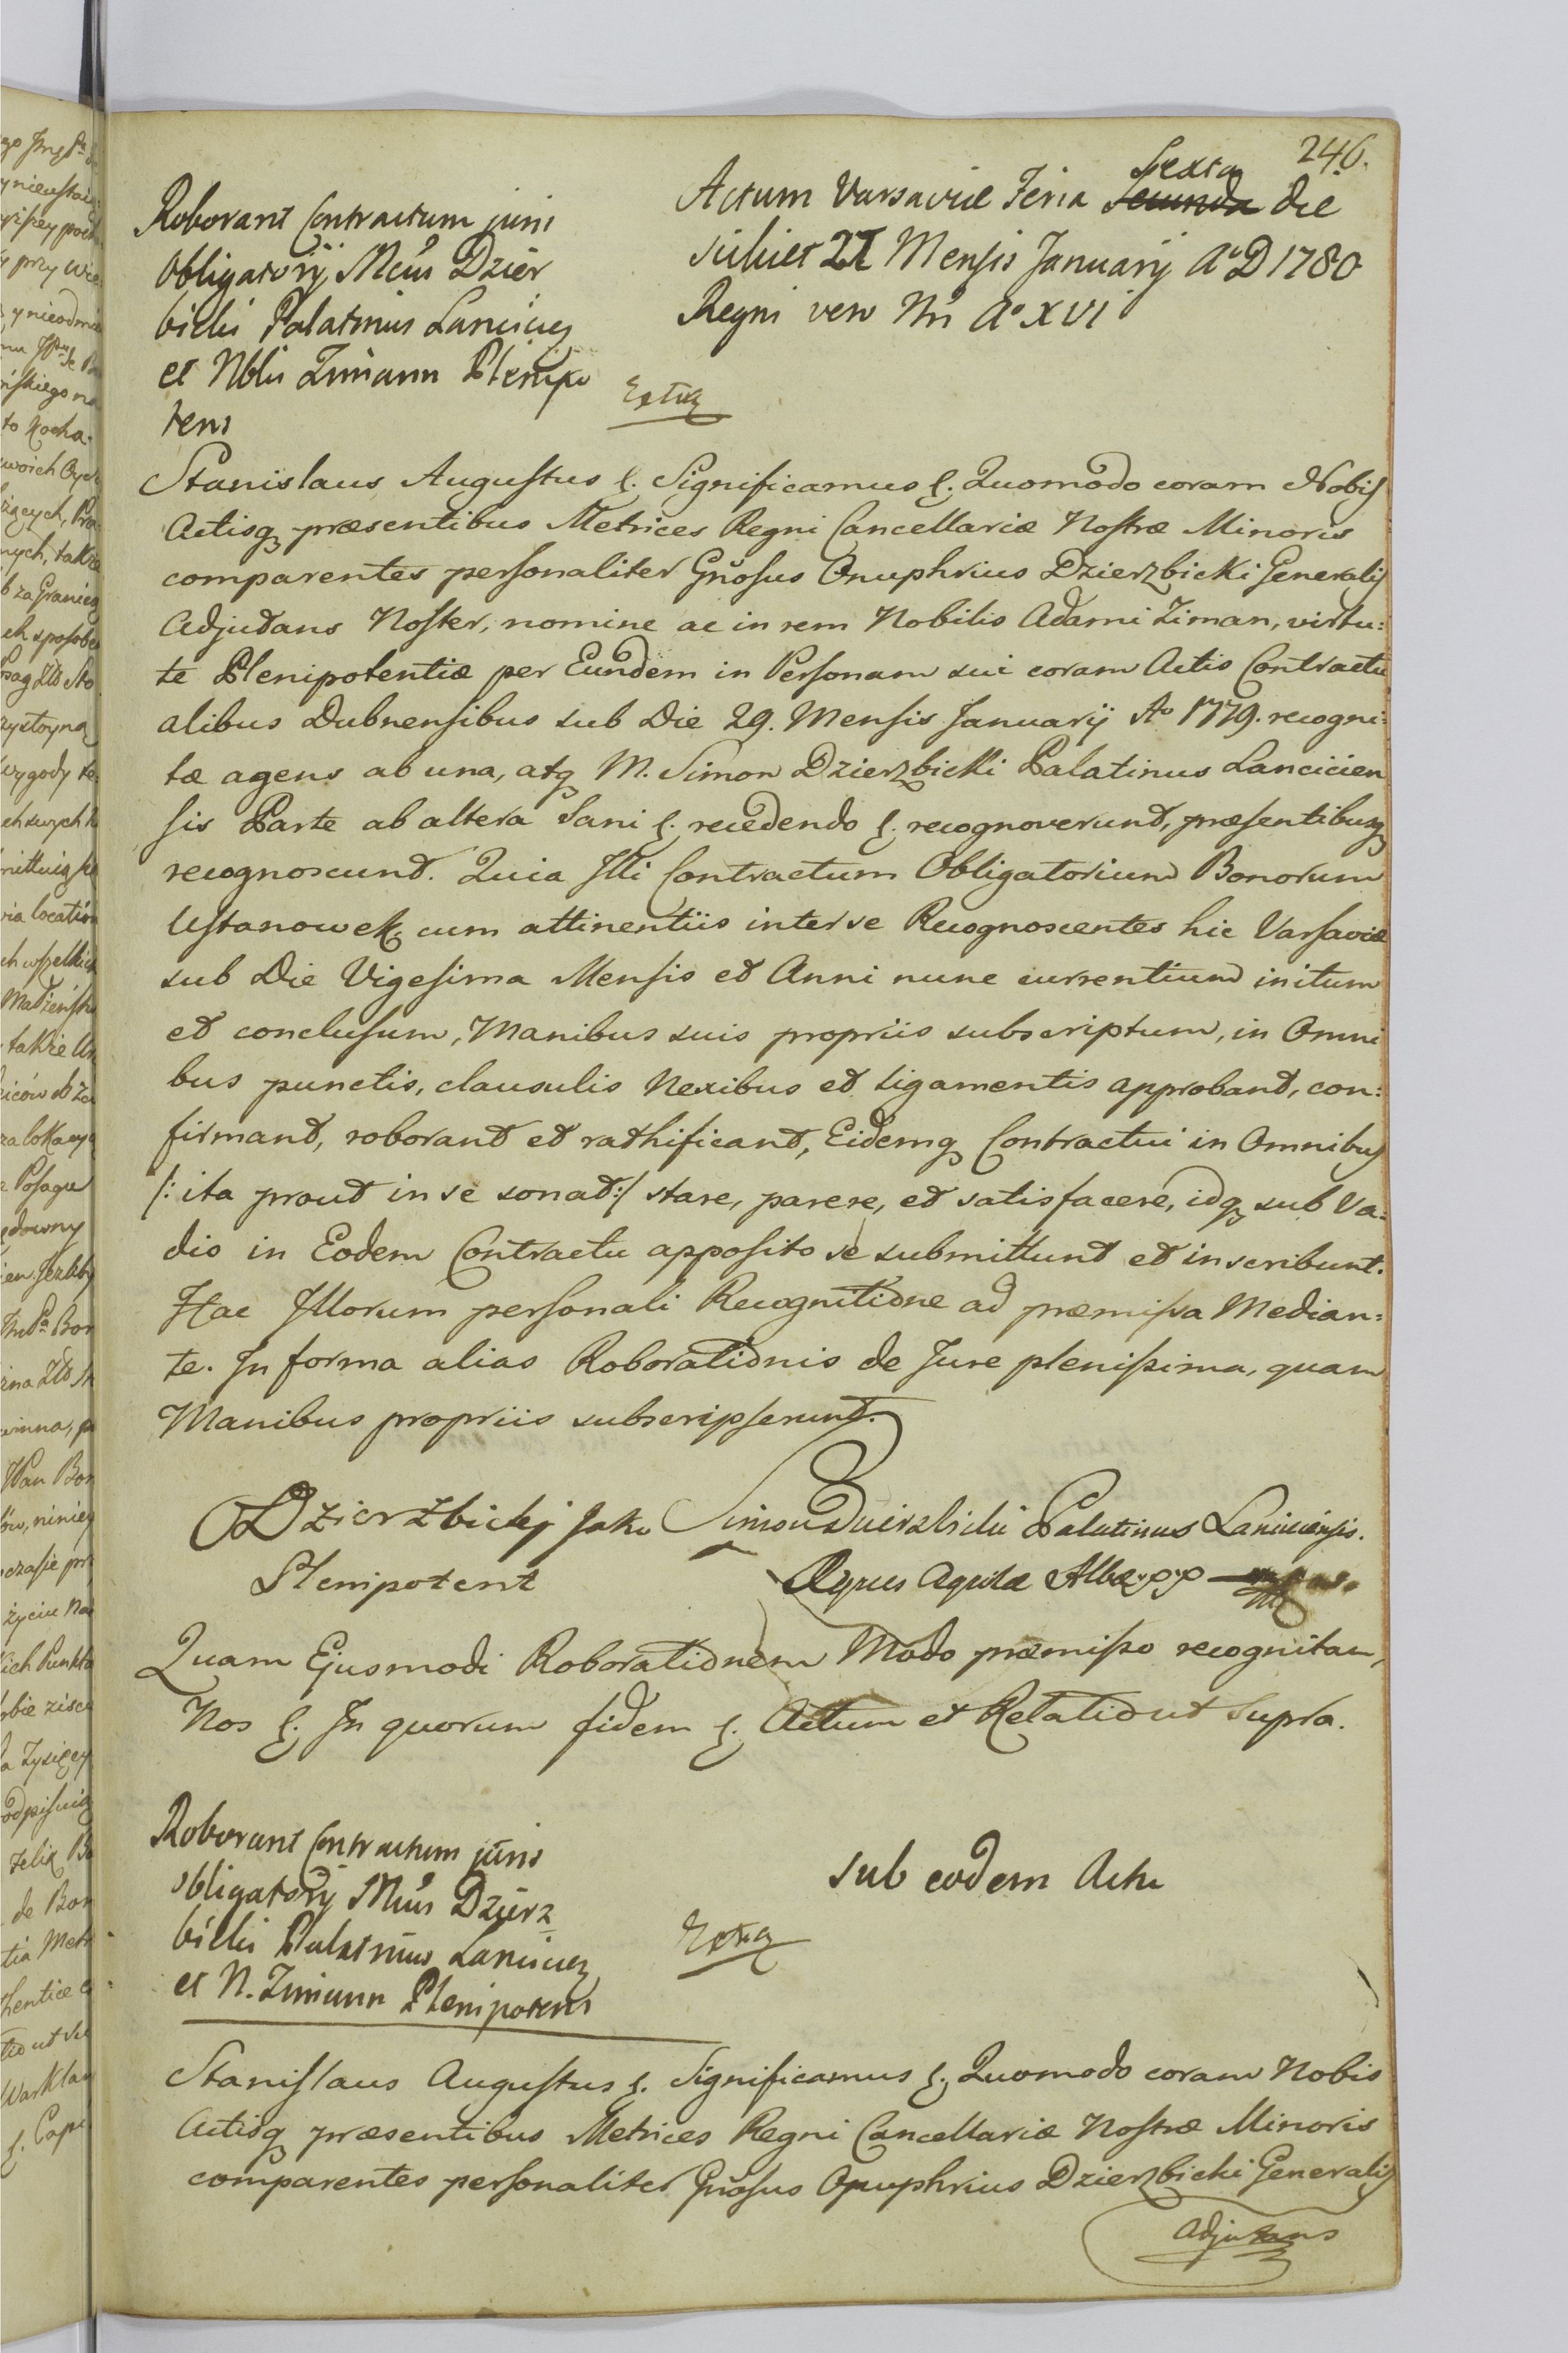 246.
Roborant Contractum juris
obligatorij Mcus Dzier
bicki Palatinus Lancicien
et Nblis Zimann Plenipo
tens
Actum Varsaviæ Feria Sexta Secunda die
scilicet 21 Mensis Januarij A° D 1780
Regni vero Nri A° XVI
Extra
Stanislaus Augustus ę. Significamus ę. Quomodo coram Nobis
Actisq præsentibus Metrices Regni Cancellariæ Nostræ Minoris
comparentes personaliter Gñosus Onuphrius Dzierzbicki Generalis
Adjudans Noster, nomine ac in rem Nobilis Adami Ziman, virtu:
te Plenipotentiæ per Eundem in Personam sui coram Actis Contractu
alibus Dubnensibus sub Die 29. Mensis Januarij A° 1779. recogni:
tæ agens ab una, atq M. Simon Dzierzbicki Palatinus Lancicien
sis Parte ab altera Sani ę. recedendo ę. recognoverunt, præsentibusq
recognoscunt. Quia Illi Contractum Obligatorium Bonorum
Ustanowek cum attinentiis inter se Recognoscentes hic Varsaviæ
sub Die Vigesima Mensis et Anni nunc currentium initum
et conclusum, Manibus suis propriis subscriptum, in Omni
bus punctis, clausulis Nexibus et Ligamentis approbant, con:
firmant, roborant et rathificant, Eidemq Contractui in Omnibus
/: ita prout in se sonat :/ stare, parere, et satisfacere, idq sub Va:
dio in Eodem Contractu apposito se submittunt et inscribunt.
Hac Illorum personali Recognitione ad præmissa Median:
te. In forma alias Roborationis de Jure plenissima, quam
Manibus propriis subscripserunt.
O Dzierzbicki Jako
Plenipotent
Simon Dzierzbicki Palatinus Lanciciensis.
Eques Aquilæ Albæ
Quam Ejusmodi Roborationem Modo præmisso recognitam,
Nos ę. In quorum fidem ę. Actum et Relatio ut Supra.
Roborant Contractum juris
obligatorij Mcus Dzierz
bicki Palatinus Lancicien
et N. Zimann Plenipotens
sub eodem Actu
Extra
Stanislaus Augustus ę. Significamus ę. Quomodo coram Nobis
Actisq præsentibus Metrices Regni Cancellariæ Nostræ Minoris
comparentes personaliter Gñosus Onuphrius Dzierzbicki Generalis
Adjutans